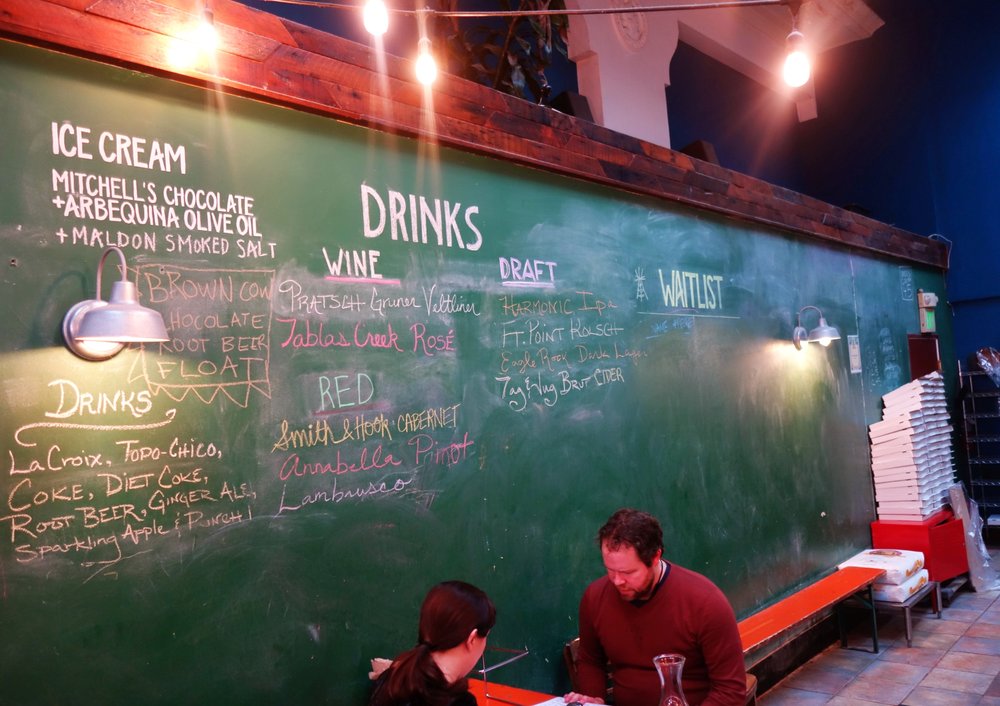 ICE CREAM
MITCHELL'S CHOCOLATE
+ARBEQUINA OLIVE OIL
+MALDON SMOKED SALT
BROWN COW
CHOCOLATE
ROOT BEER
FLOAT
DRINKS
LACROIX, TOPO-CHICO,
COKE, DIET COKE,
ROOT BEER, GINGER ALE,
Sparkling Apple &
DRINKS
WINE
PRATSCH Gruner Veltliner
Tablas Creek Rosé
RED
Smith & Hook CABERNET
Annabella Pinot
Lambrusco
DRAFT
HARMONIC Ipa
FT. POINT KOLSCH
Eagle Rock Dark Lager
Tag & Jug BRUT CIDER
WAITLIST